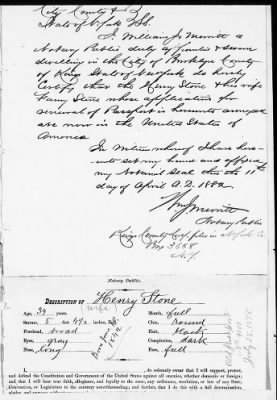 City County & }
State of N. York } SS.
I William J. Merritt a
Notary Public, duly & sworn
dwelling in the City of Brooklyn County
of Kings State of New York do hereby
Certify that the Henry Stone & his wife
Fanny Stone whose application for
renewal of Passport is hereunto annexed
are now in the United States of
America
In witness whereof I have here-
unto set my hand and affixed
my Notarial Seal this 11th
day of April A.D. 1882
Wm J Merritt
Notary Public
Kings County Certf. filed in N. York Co.
No 3658
N.Y
Notary Public.
DESCRIPTION OF Henry Stone
Age: 39 years
Stature: 5 feet 4 1/2 inches
Forehead: broad
Eyes: gray
Nose: long
Mouth: full
Chin: round
Hair: black
Complexion: dark
Face: full
I, do solemnly swear that I will support, protect,
and defend the Constitution and Government of the United States against all enemies, whether domestic or foreign;
and that I will bear true faith, allegiance, and loyalty to the same, any ordinance, resolution, or law of any State,
Convention, or Legislature to the contrary notwithstanding; and further, that I do this with a full determination,